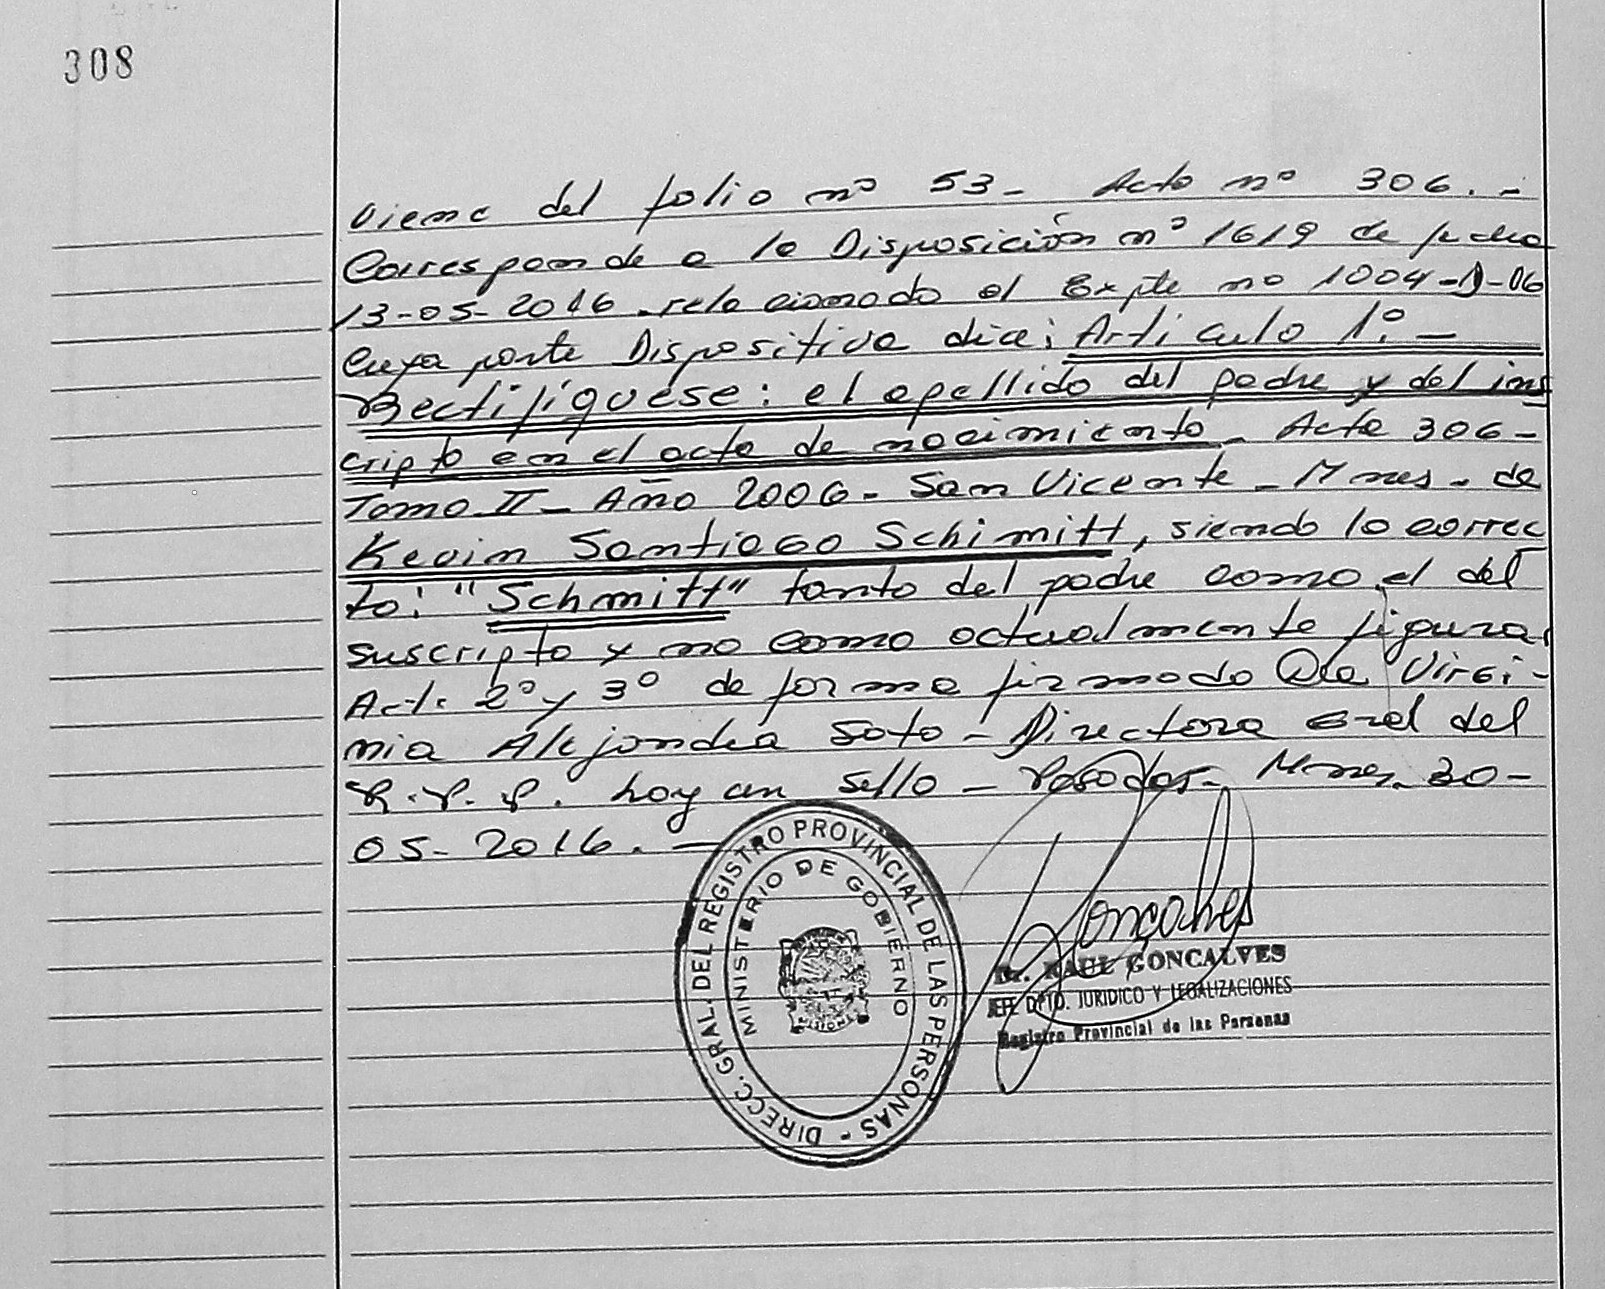 308
Viene del folio nº 53- Acta nº 306.-
Corresponde a la Disposición nº 1619 de fecha
13-05-2016 relacionado al Expte nº 1004-D-06
Cuya parte Dispositiva dice: Artículo 1º.-
Rectifíquese: el apellido del padre y del ins
cripto en el acta de nacimiento - Acta 306-
Tomo II - Año 2006 - San Vicente - Mnes - de
Kevin Santiago Schimitt, siendo lo correc
to: "Schmitt" tanto del padre como el del
suscripto y no como actualmente figura.
Art. 2º y 3º de forma firmado Dra Virgi-
nia Alejandra Soto - Directora Gral del
R.P.P. hay un sello - Posadas - Mnes. 30-
05-2016. -
DIRECC. GRAL. DEL REGISTRO PROVINCIAL DE LAS PERSONAS -
MINISTERIO DE GOBIERNO
MISIONES
Goncalves
Dr. RAUL GONCALVES
JEFE DPTO. JURIDICO Y LEGALIZACIONES
Registro Provincial de las Personas